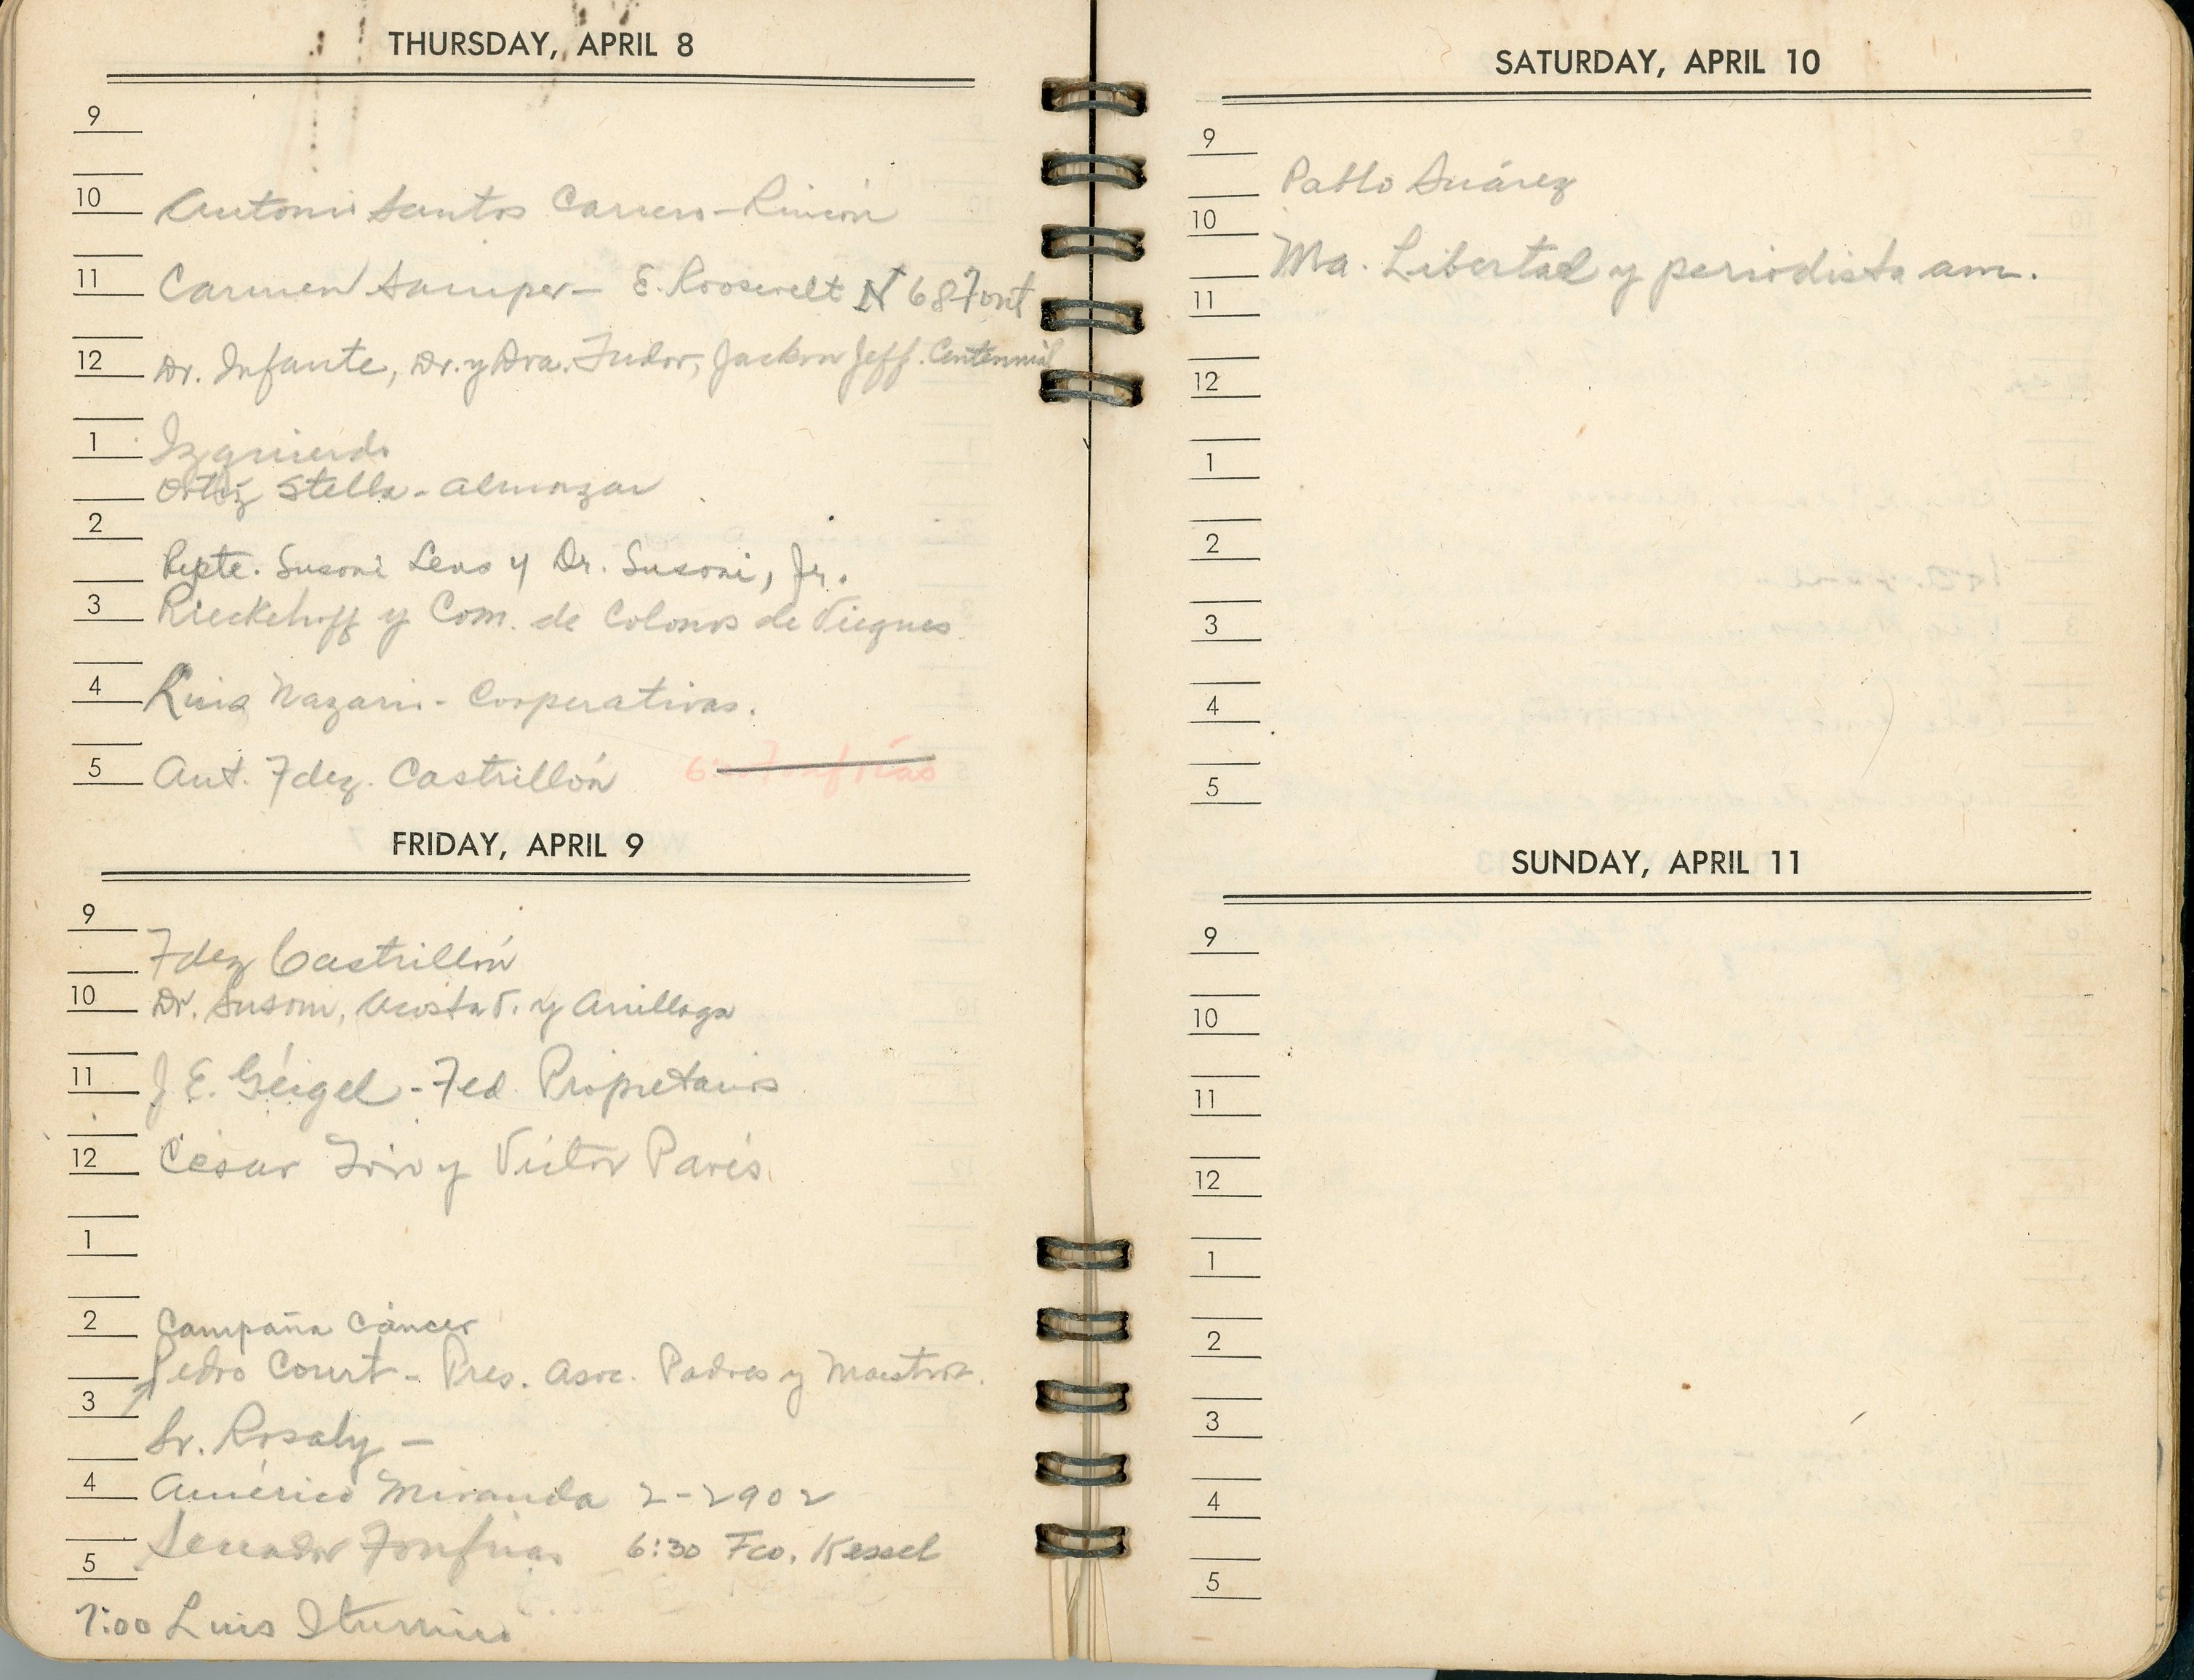 THURSDAY, APRIL 8
9
10 Antonio Santos Carrero - Rincón
11 Carmen Samper - E. Roosevelt N 68 Font
12 Dr. Infante, Dr. y Dra. Tudor, Jackson Jeff. Centennial
1 Izquierdo
Ortiz Stella - Almonzar
2
Repte. Susoni Lens y Dr. Susoni, Jr.
3 Rieckehoff y Com. de Colonos de Vieques
4 Luis Nazario - Cooperativas.
5 Ant. Fdez. Castrillón 6: Fonfrías
FRIDAY, APRIL 9
9
Fdez Castrillón
10 Dr. Susoni, Acosta V. y Arrillaga
11 J. E. Géigel - Fed Propietarios
12 César Toro y Víctor Parés
1
2 Campaña Cáncer
Pedro Court - Pres. Asoc. Padres y Maestros.
3
Sr. Rosaly -
4 Américo Miranda 2-2902
Senador Fonfrías 6:30 Fco. Kessel
5
7:00 Luis Iturrino
SATURDAY, APRIL 10
9
Pablo Suárez
10
Ma. Libertad y periodista am.
11
12
1
2
3
4
5
SUNDAY, APRIL 11
9
10
11
12
1
2
3
4
5